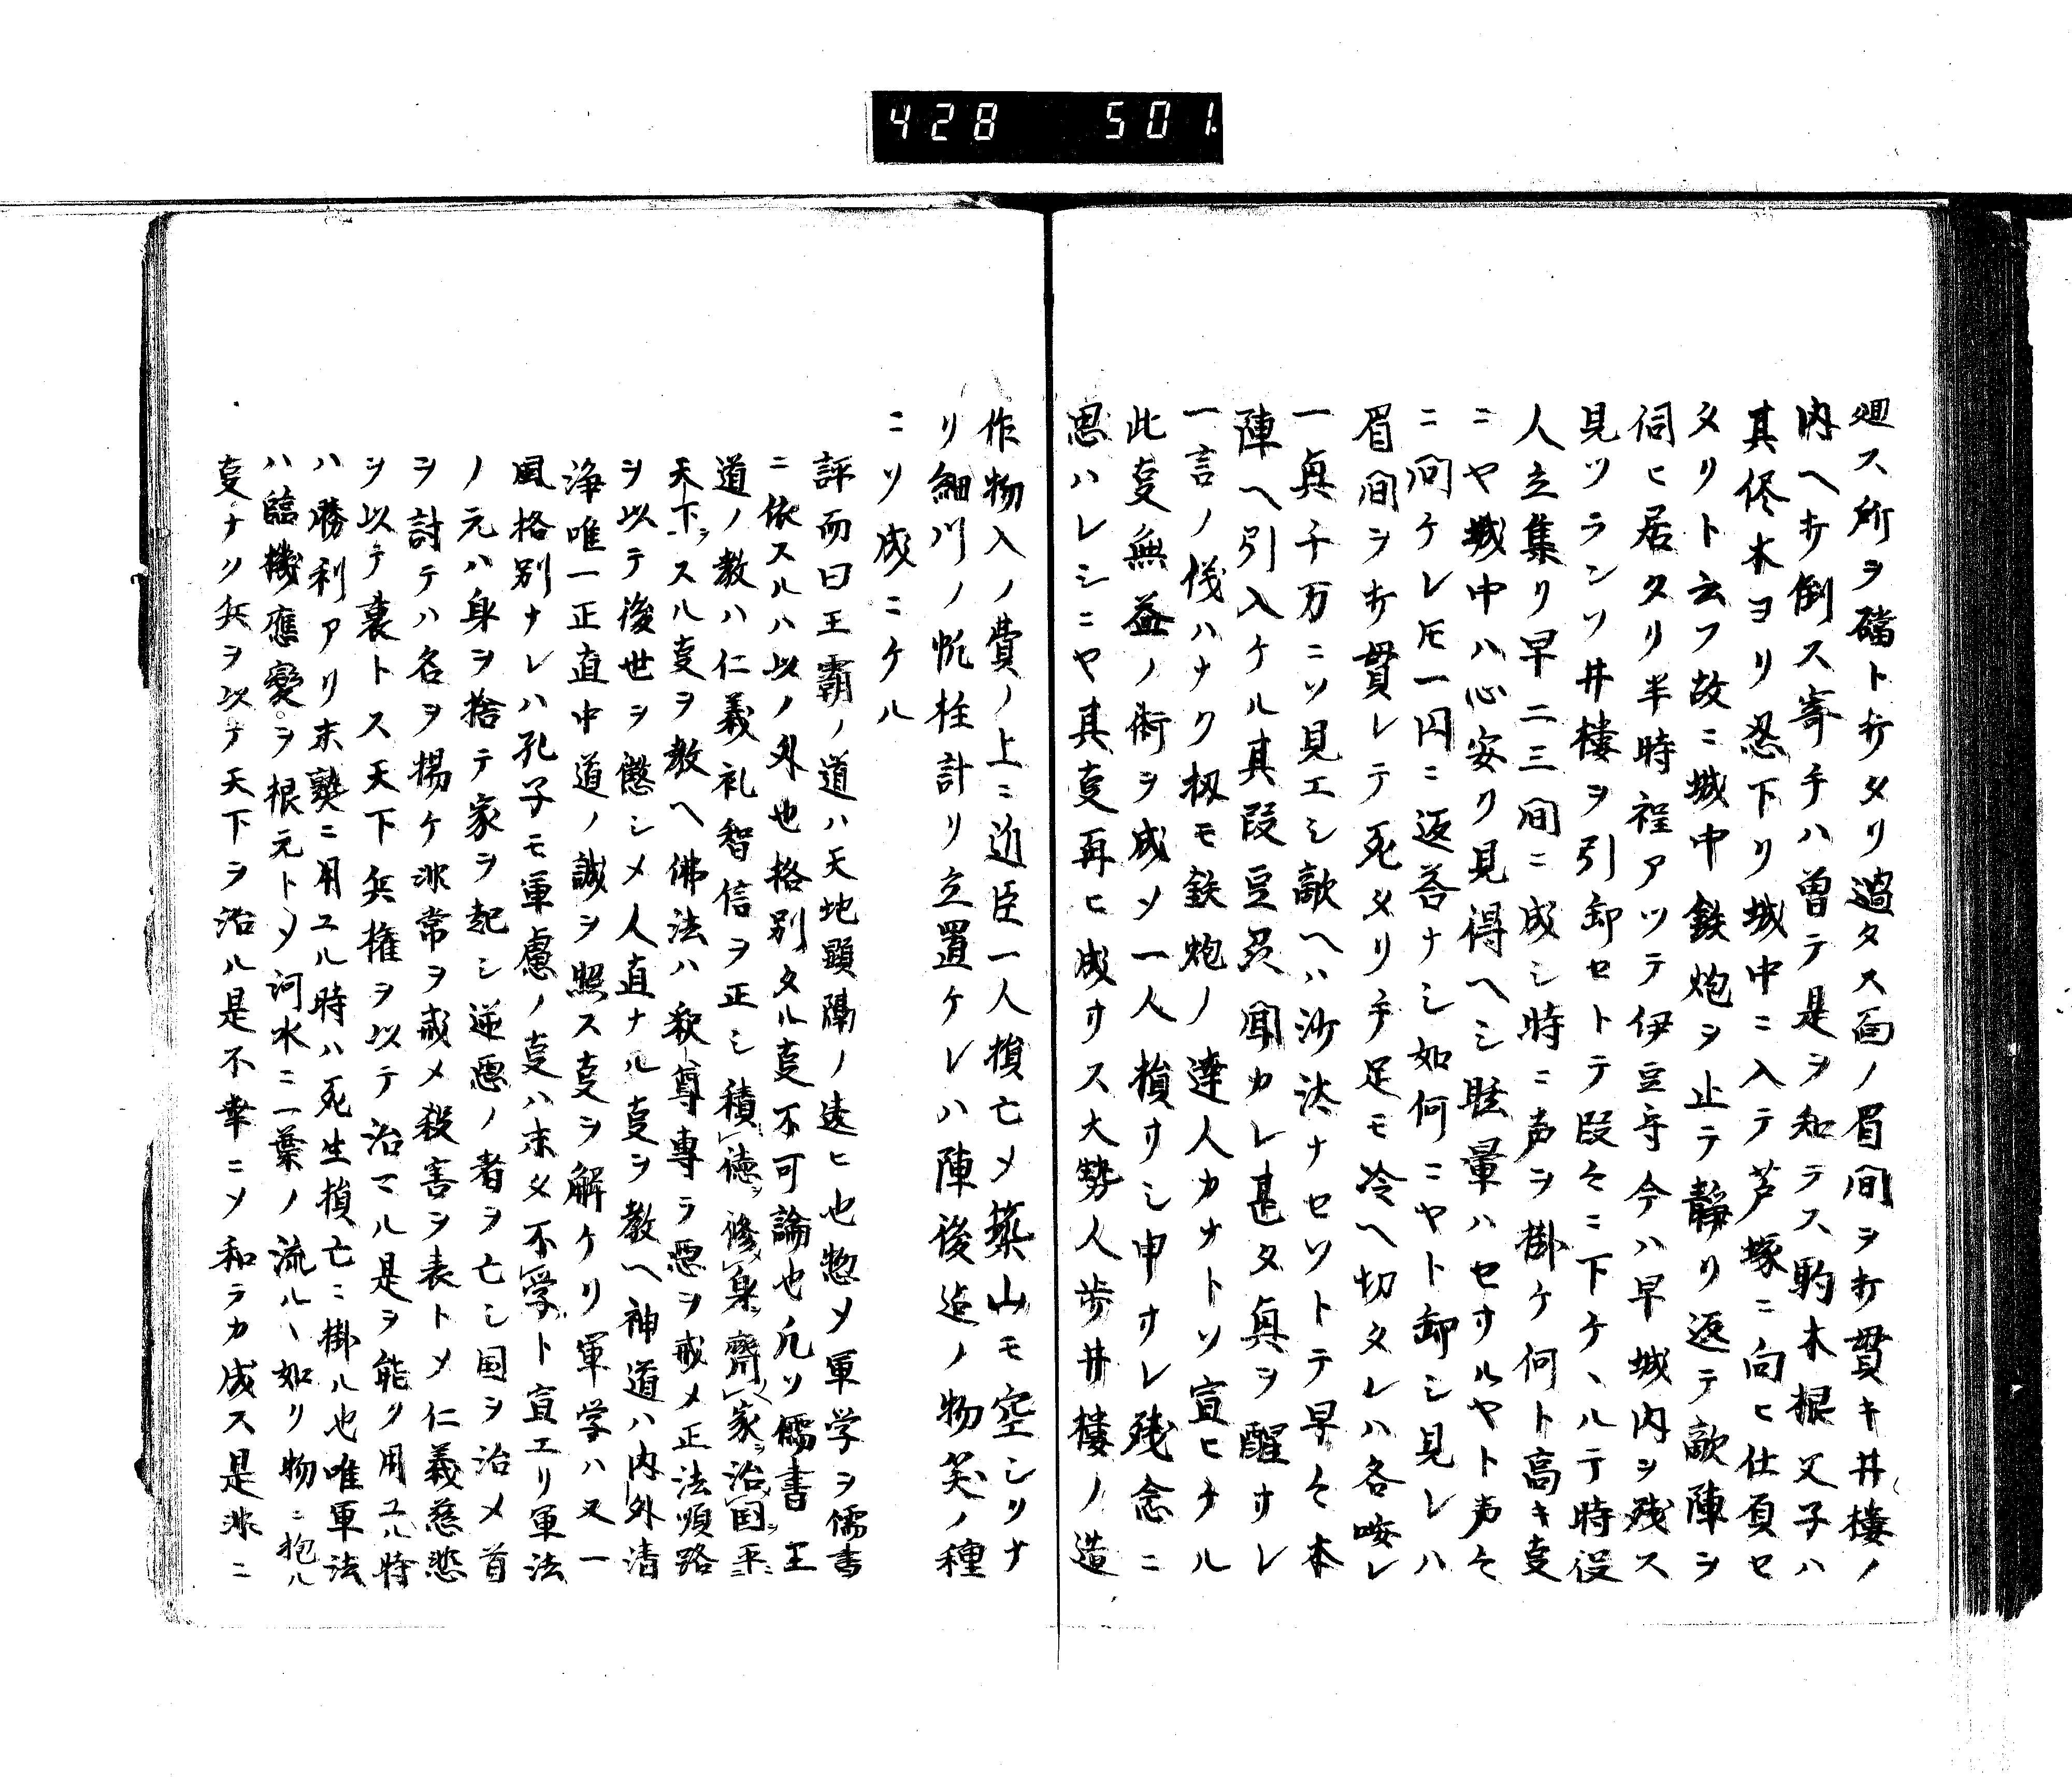 428 501
廻ス所ヲ礑ト打タリ過タス面ノ眉間ヲ打貫キ井樓ノ
内ヘ打倒ス寄手ハ曽テ是ヲ知ラス駒木根父子ハ
其侭木ヨリ忍下リ城中ニ入テ芦塚ニ向ヒ仕負セ
タリト云フ故ニ城中鉄炮ヲ止テ静リ返テ敵陣ヲ
伺ヒ居タリ半時程アツテ伊豆守今ハ早城内ヲ残ス
見ツランソ井樓ヲ引卸セトテ段々ニ下ケヽルテ時役
人立集リ早二三間ニ成シ時ニ声ヲ掛ケ何ト高キ叓
ニヤ城中ハ心安リ見得ヘシ眩暈ハセサルヤト声々
ニ問ケレ𪜈一円ニ返荅ナシ如何ニヤト卸シ見レハ
眉間ヲ打貫レテ死タリ手足モ冷ヘ切タレハ各呟レ
一真千万ニソ見エシ敵ヘハ沙汰ナセソトテ早々本
陣ヘ引入ケル其段豆州聞カレ甚タ真ヲ醒サレ
一言ノ儀ハナク扨モ鉄炮ノ達人カナトソ宣ヒケル
此叓無益ノ術ヲ成メ一人損サシ申サレ残念ニ
思ハレシニヤ其叓再ヒ成サス大勢人歩井樓ノ造
作物入ノ費ノ上ニ近臣一人損亡メ築山モ空シリナ
リ細川ノ帆柱計リ立置ケレハ陣後迄ノ物笑ノ種
ニソ成ニケル
評而曰王覇ノ道ハ天地顕陽ノ違ヒ也惣メ軍学ヲ儒書
ニ依スルハ以ノ外也格別タル叓不可論也凡ソ儒書王
道ノ教ハ仁義礼智信ヲ正シ積徳ヲ修身ヲ齊家ヲ治国ヲ平ニ
天下ヲスル叓ヲ教ヘ佛法ハ釈尊專ラ悪ヲ戒メ正法順路
ヲ以テ後世ヲ懲シメ人直ナル叓ヲ教ヘ神道ハ内外清
浄唯一正直中道ノ誠ヲ照ス叓ヲ解ケリ軍学ハ又一
風格別ナレハ孔子モ軍慮ノ叓ハ未タ不学ト宣エリ軍法
ノ元ハ身ヲ捨テ家ヲ起シ逆悪ノ者ヲ亡シ国ヲ治メ首
ヲ討テハ名ヲ揚ケ非常ヲ戒メ殺害ヲ表トメ仁義慈悲
ヲ以テ裏トス天下兵権ヲ以テ治マル是ヲ能ク用ユル時
ハ勝利アリ末弊ニ用ユル時ハ死生損亡ニ掛ル也唯軍法
ハ臨機應變ヲ根元トメ河水ニ一葉ノ流ルヽ如リ物ニ抱ル
叓ナソ兵ヲ以テ天下ヲ治ル是不幸ニメ和ラカ成ス是非ニ